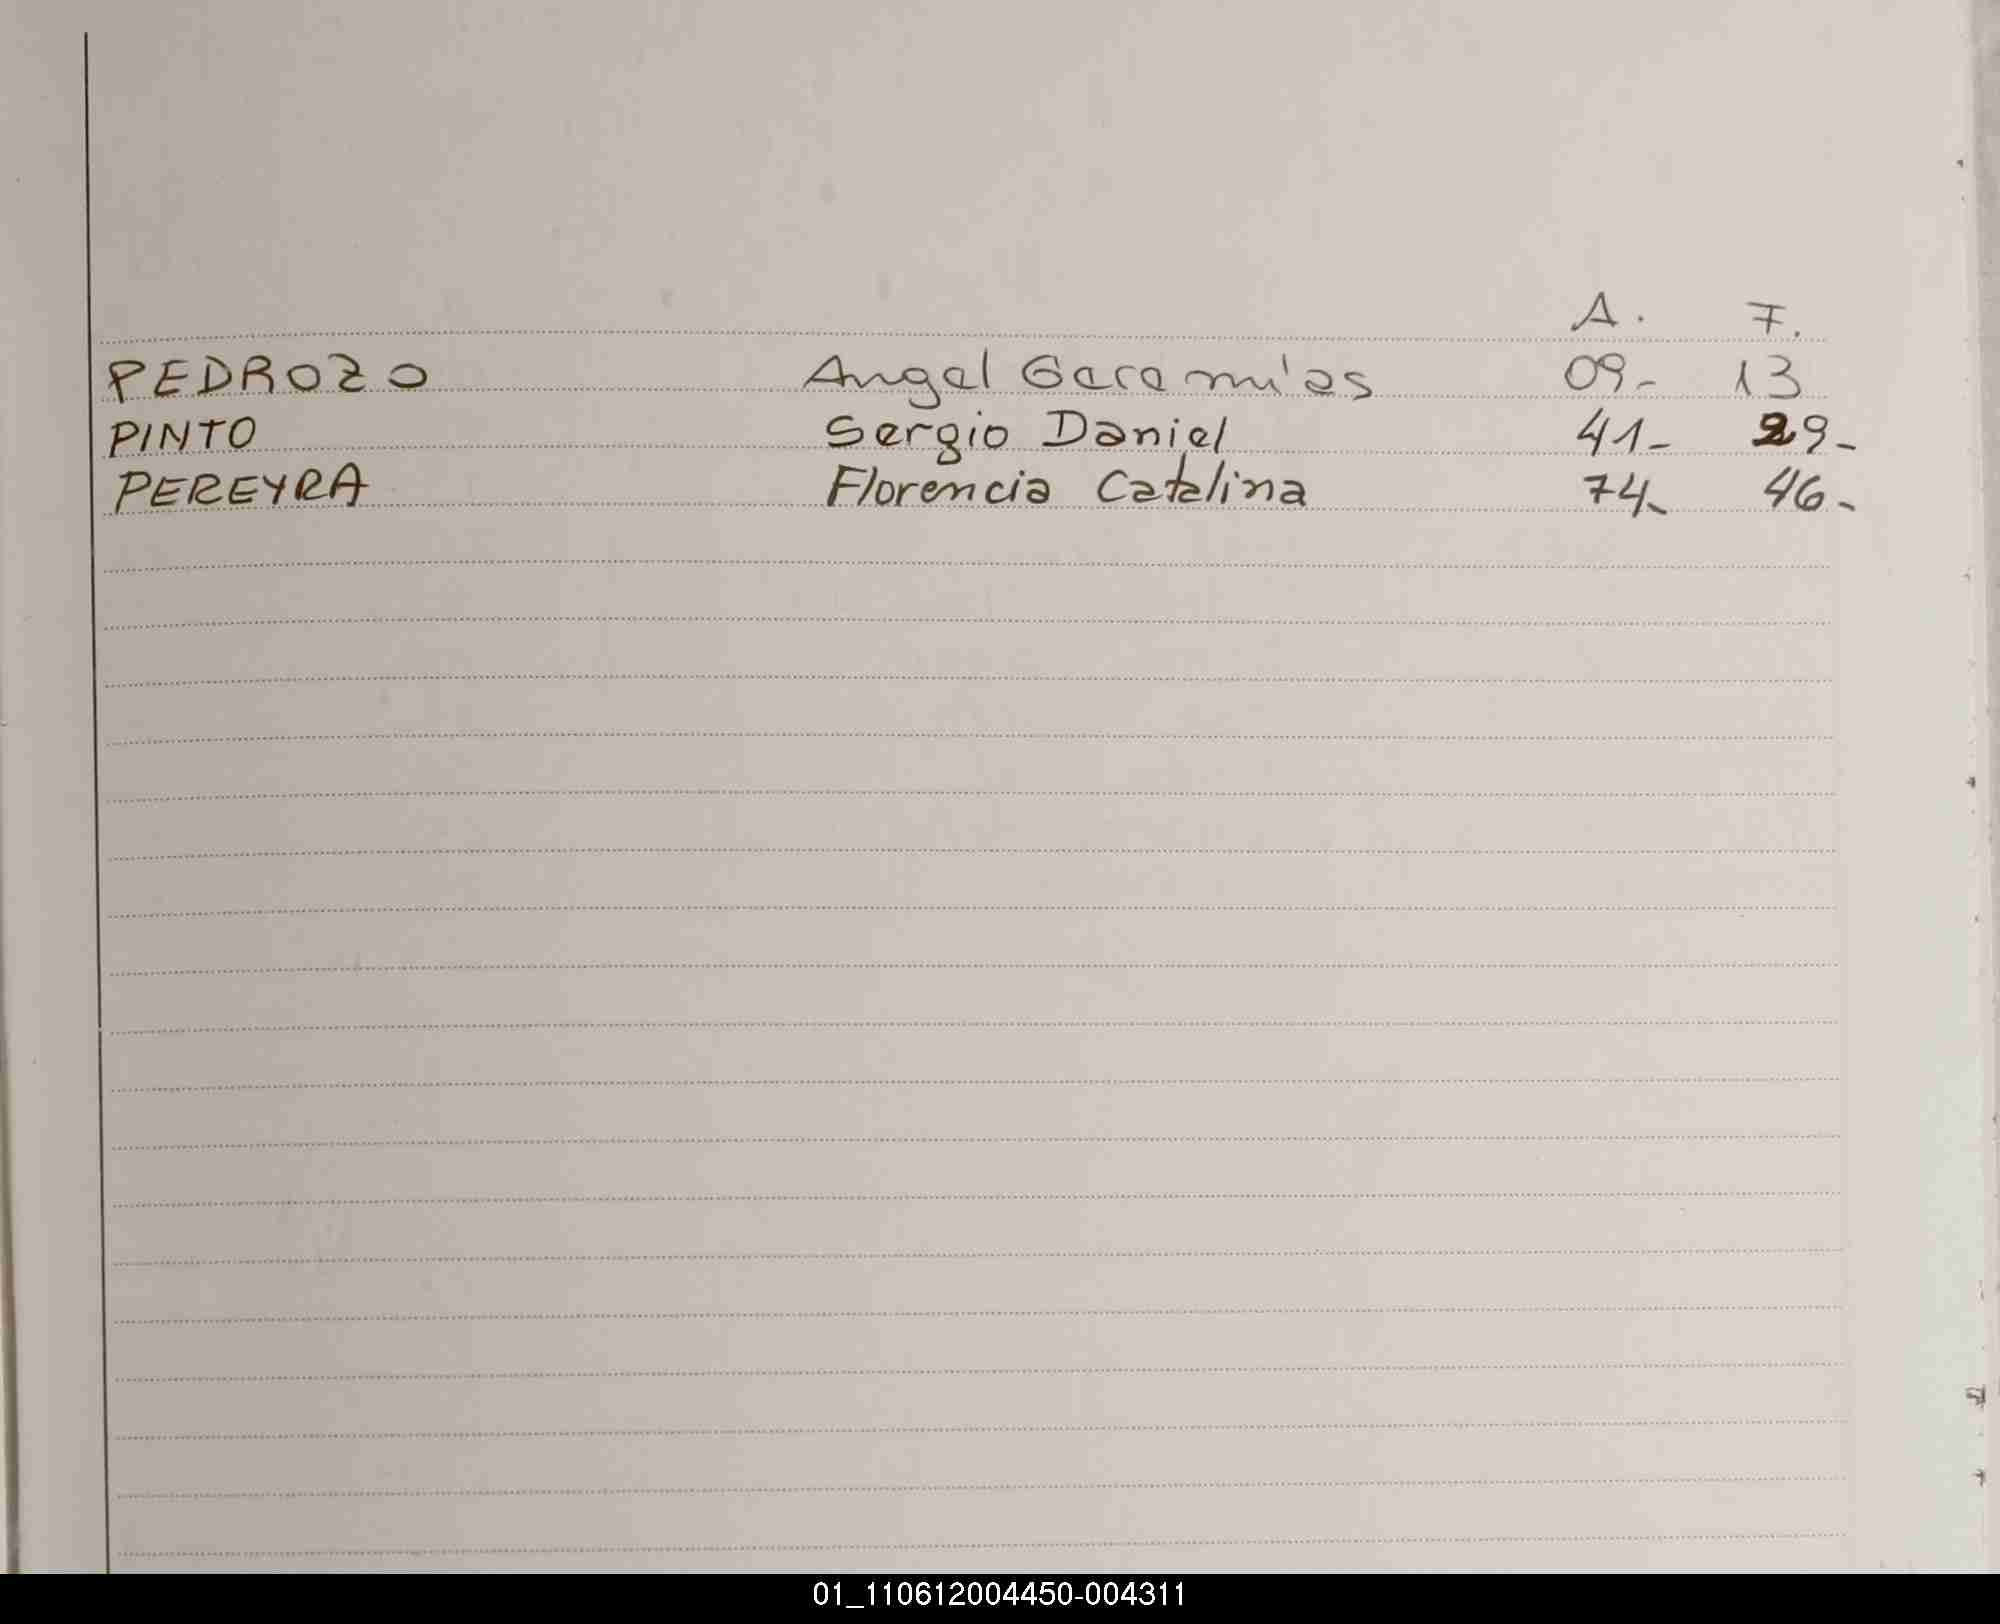 A. F.
PEDROZO Angel Geremías 09- 13
PINTO Sergio Daniel 41- 29-
PEREYRA Florencia Catalina 74- 46-
01_110612004450-004311